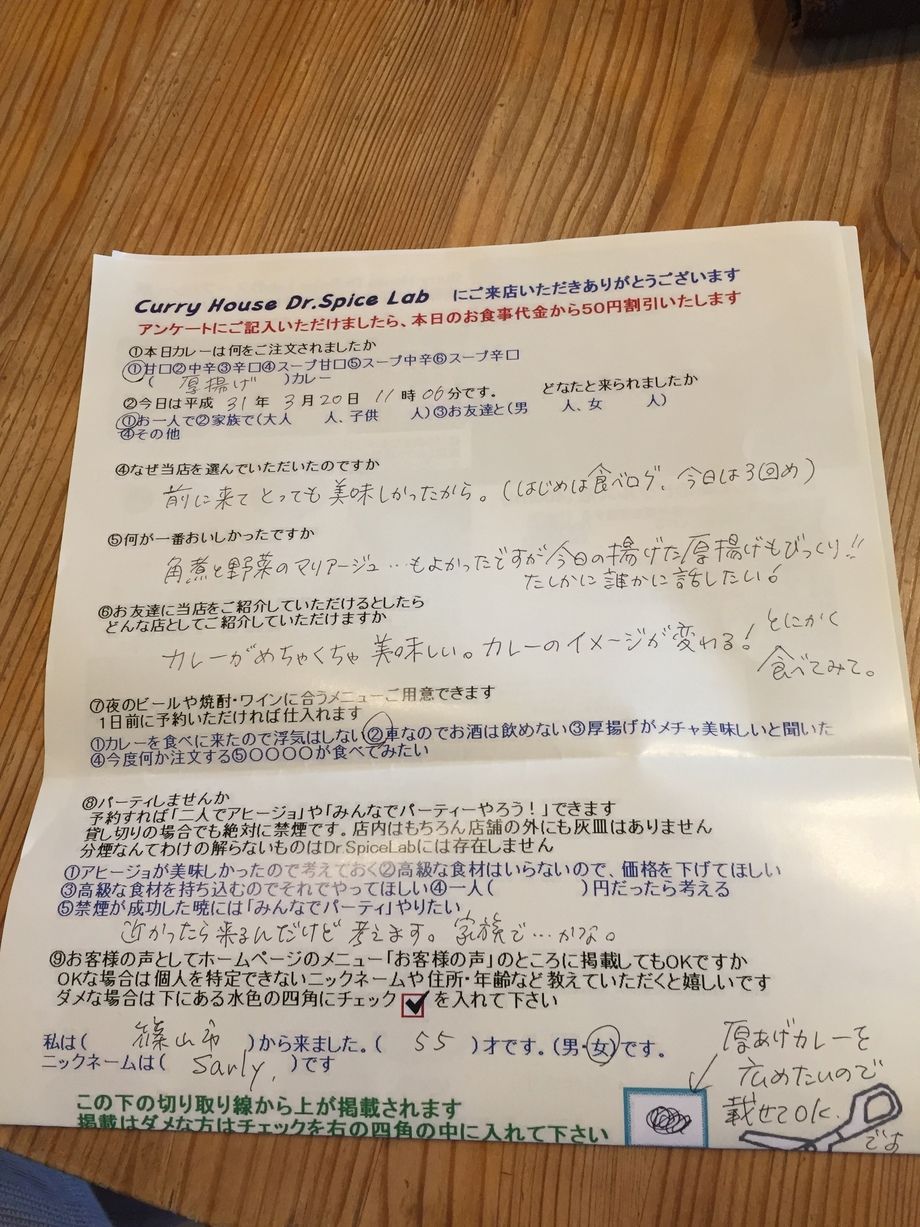 Curry House Dr.Spice Lab にご来店いただきありがとうございます
アンケートにご記入いただけましたら、本日のお食事代金から50円割引いたします
①本日カレーは何をご注文されましたか
①甘口②中辛③辛口④スープ甘口⑤スープ中辛⑥スープ辛口
( 厚揚げ )カレー
②今日は平成 31 年 3 月 20 日 11 時 06 分です。 どなたと来られましたか
①お一人で②家族で(大人 人、子供 人)③お友達と(男 人、女 人)
④その他
④なぜ当店を選んでいただいたのですか
前に来てとっても美味しかったから。(はじめは食べログ、今日は3回め)
⑤何が一番おいしかったですか
角煮と野菜のマリアージュ…もよかったですが今日の揚げた厚揚げもびっくり!!
たしかに誰かに話したい!
⑥お友達に当店をご紹介していただけるとしたら
どんな店としてご紹介していただけますか
カレーがめちゃくちゃ美味しい。カレーのイメージが変わる! とにかく
食べてみて。
⑦夜のビールや焼酎・ワインに合うメニューご用意できます
1日前に予約いただければ仕入れます
①カレーを食べに来たので浮気はしない②車なのでお酒は飲めない③厚揚げがメチャ美味しいと聞いた
④今度何か注文する⑤〇〇〇〇が食べてみたい
⑧パーティしませんか
予約すれば「二人でアヒージョ」や「みんなでパーティーやろう!」できます
貸し切りの場合でも絶対に禁煙です。店内はもちろん店舗の外にも灰皿はありません
分煙なんてわけの解らないものはDr.SpiceLabには存在しません
①アヒージョが美味しかったので考えておく②高級な食材はいらないので、価格を下げてほしい
③高級な食材を持ち込むのでそれでやってほしい④一人( )円だったら考える
⑤禁煙が成功した暁には「みんなでパーティ」やりたい
近かったら来るんだけど考えます。家族で…かな。
⑨お客様の声としてホームページのメニュー「お客様の声」のところに掲載してもOKですか
OKな場合は個人を特定できないニックネームや住所・年齢など教えていただくと嬉しいです
ダメな場合は下にある水色の四角にチェック を入れて下さい
私は( 篠山市 )から来ました。( 55 )才です。(男・女)です。
ニックネームは( Sarly, )です
厚あげカレーを
広めたいので
載せてOK.
です
この下の切り取り線から上が掲載されます
掲載はダメな方はチェックを右の四角の中に入れて下さい